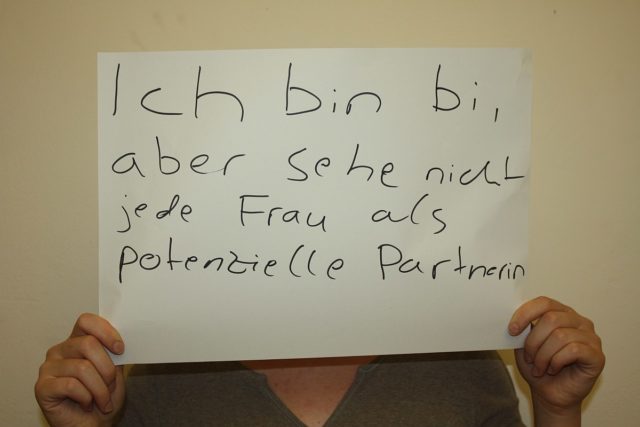 Ich bin bi,
aber sehe nicht
jede Frau als
potenzielle Partnerin